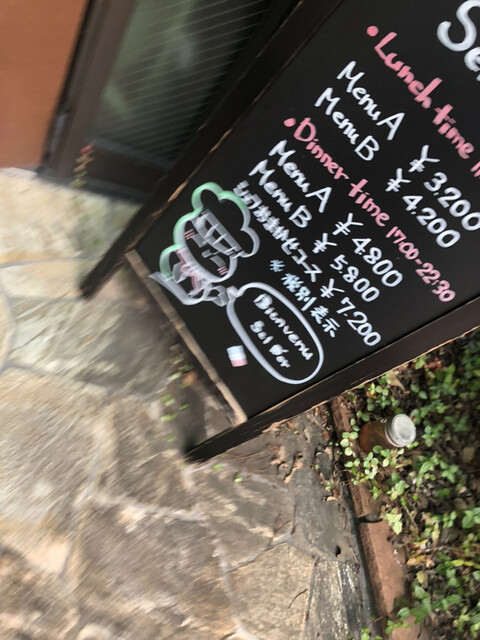 Se
• Lunch time
Menu A ¥3,200
Menu B ¥4,200
• Dinner time 17:00-22:30
Menu A ¥4800
Menu B ¥5800
シェフおまかせコース ¥7,200
※税別表示
Bienvenu
Sel Or